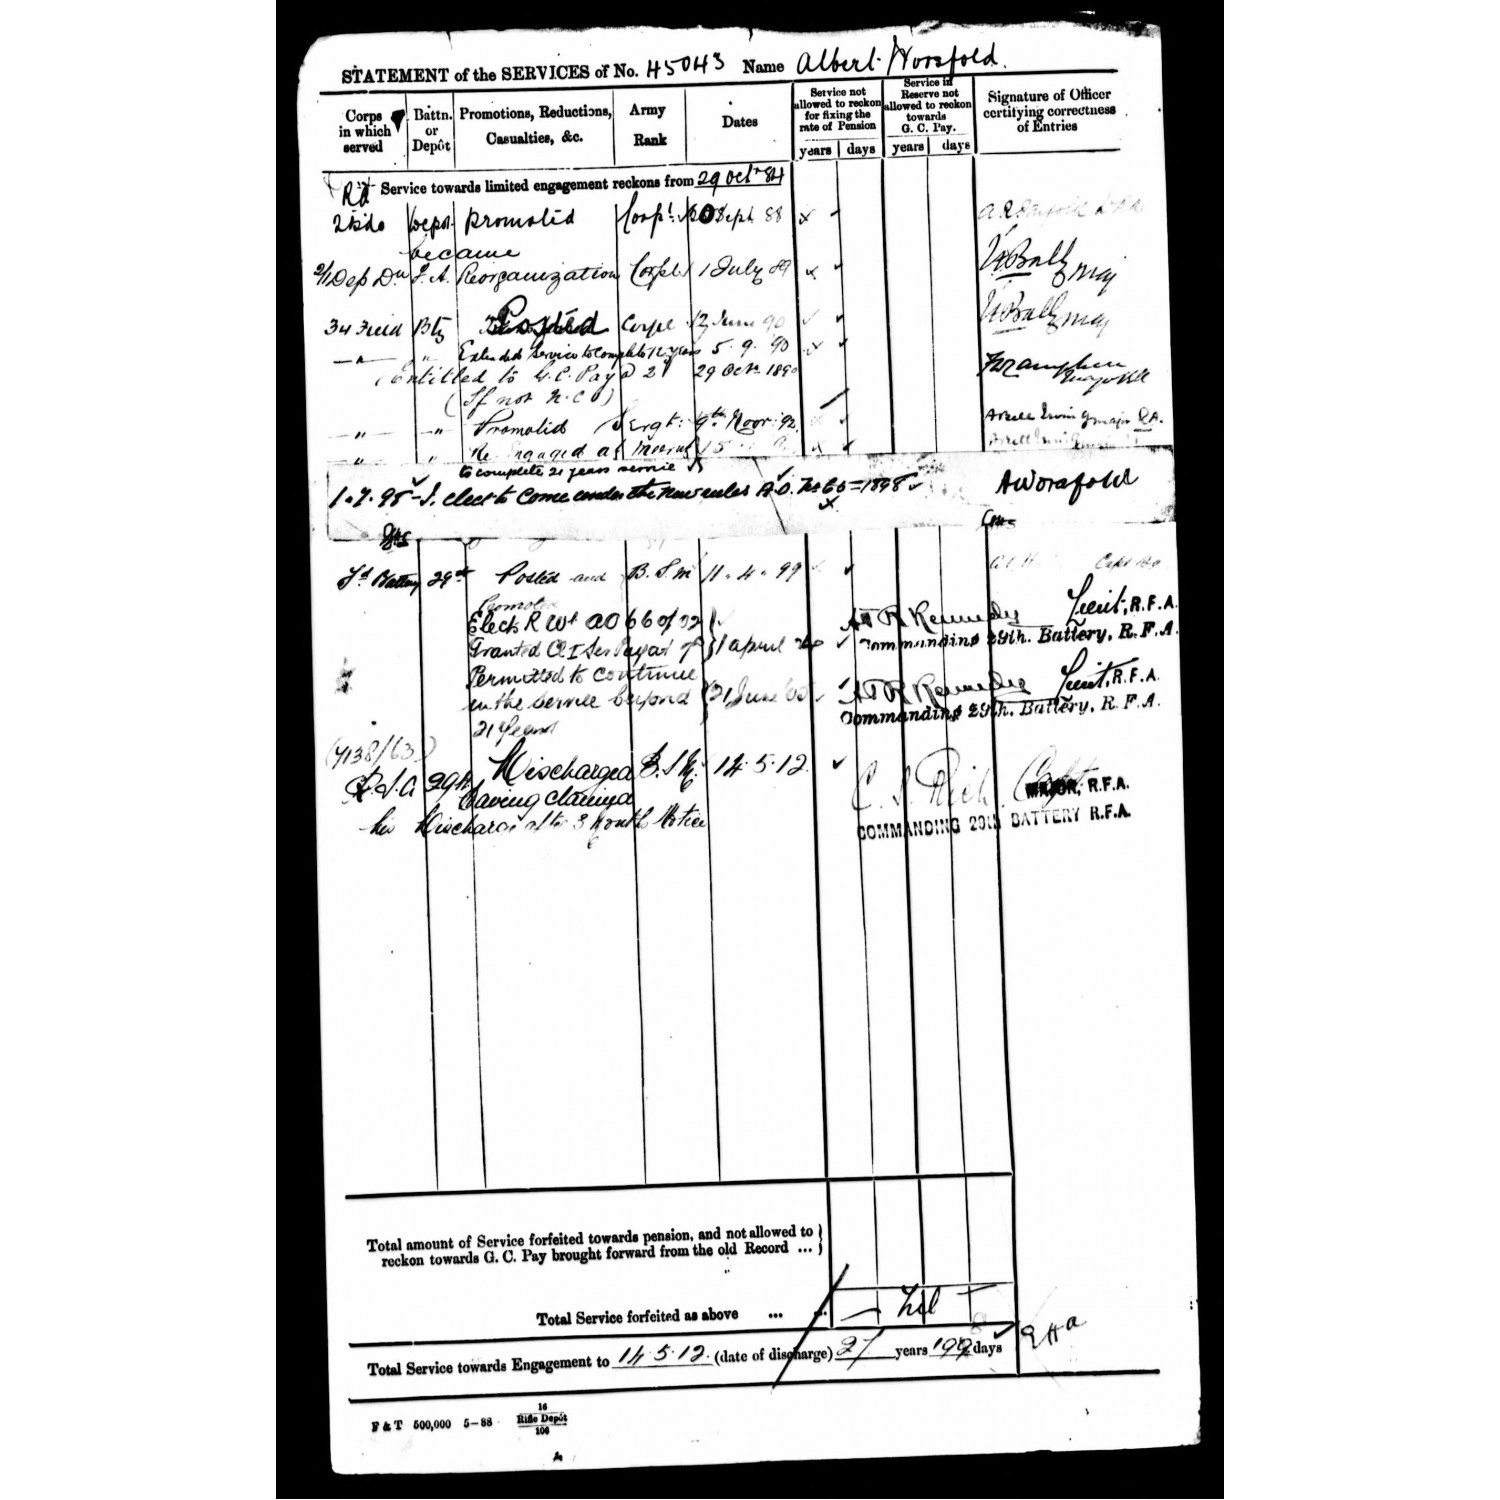 STATEMENT of the SERVICES of No. 45043 Name Albert Worsfold.
Corps in which served
Battn. or Depôt
Promotions, Reductions, Casualties, &c.
Army Rank
Dates
Service not allowed to reckon for fixing the rate of Pension
years days
Service in Reserve not allowed to reckon towards G. C. Pay.
years days
Signature of Officer certifying correctness of Entries
Service towards limited engagement reckons from 29 Octr 84
Depot Promoted Corpl Sept 88
became
Dep Dn F.A. Reorganization Corpl 1 July 89
Maj
34 Field Bty Posted Corpl June 90
Maj
" Extended Service to complete 12 years 5.9.90
Entitled to G.C. Pay @ 2d 29 Octr 1890
(If not N.C.O)
" " Promoted Sergt: 9th Novr: 92 Irwin Major RA.
" " Re Engaged at 15
to complete 21 years service
1.7.98 I elect to come under the new rules A.O. 65=1898 AWorsfold
Fd Battery 29th Posted and B.S.M 11.4.99
Promoted
Elects R Wt AO 66 of 02
Granted Cl I Ser Pay at 1 April 04 Kennedy Lieut, R.F.A.
Commanding 29th. Battery, R.F.A.
Permitted to continue
in the service beyond 21 June Kennedy Lieut, R.F.A.
Commanding 29th. Battery, R.F.A.
21 Years
(7138/63)
29th Discharged B.S.M. 14.5.12. C. S. Rich Capt
MAJOR, R.F.A.
having claimed
his Discharge after 3 Months Notice
COMMANDING 29th BATTERY R.F.A.
Total amount of Service forfeited towards pension, and not allowed to
reckon towards G. C. Pay brought forward from the old Record ...
Total Service forfeited as above ... ... Nil
Total Service towards Engagement to 14.5.12. (date of discharge) 27 years 199 days
F & T 500,000 5—88 16 Rifle Depôt 106